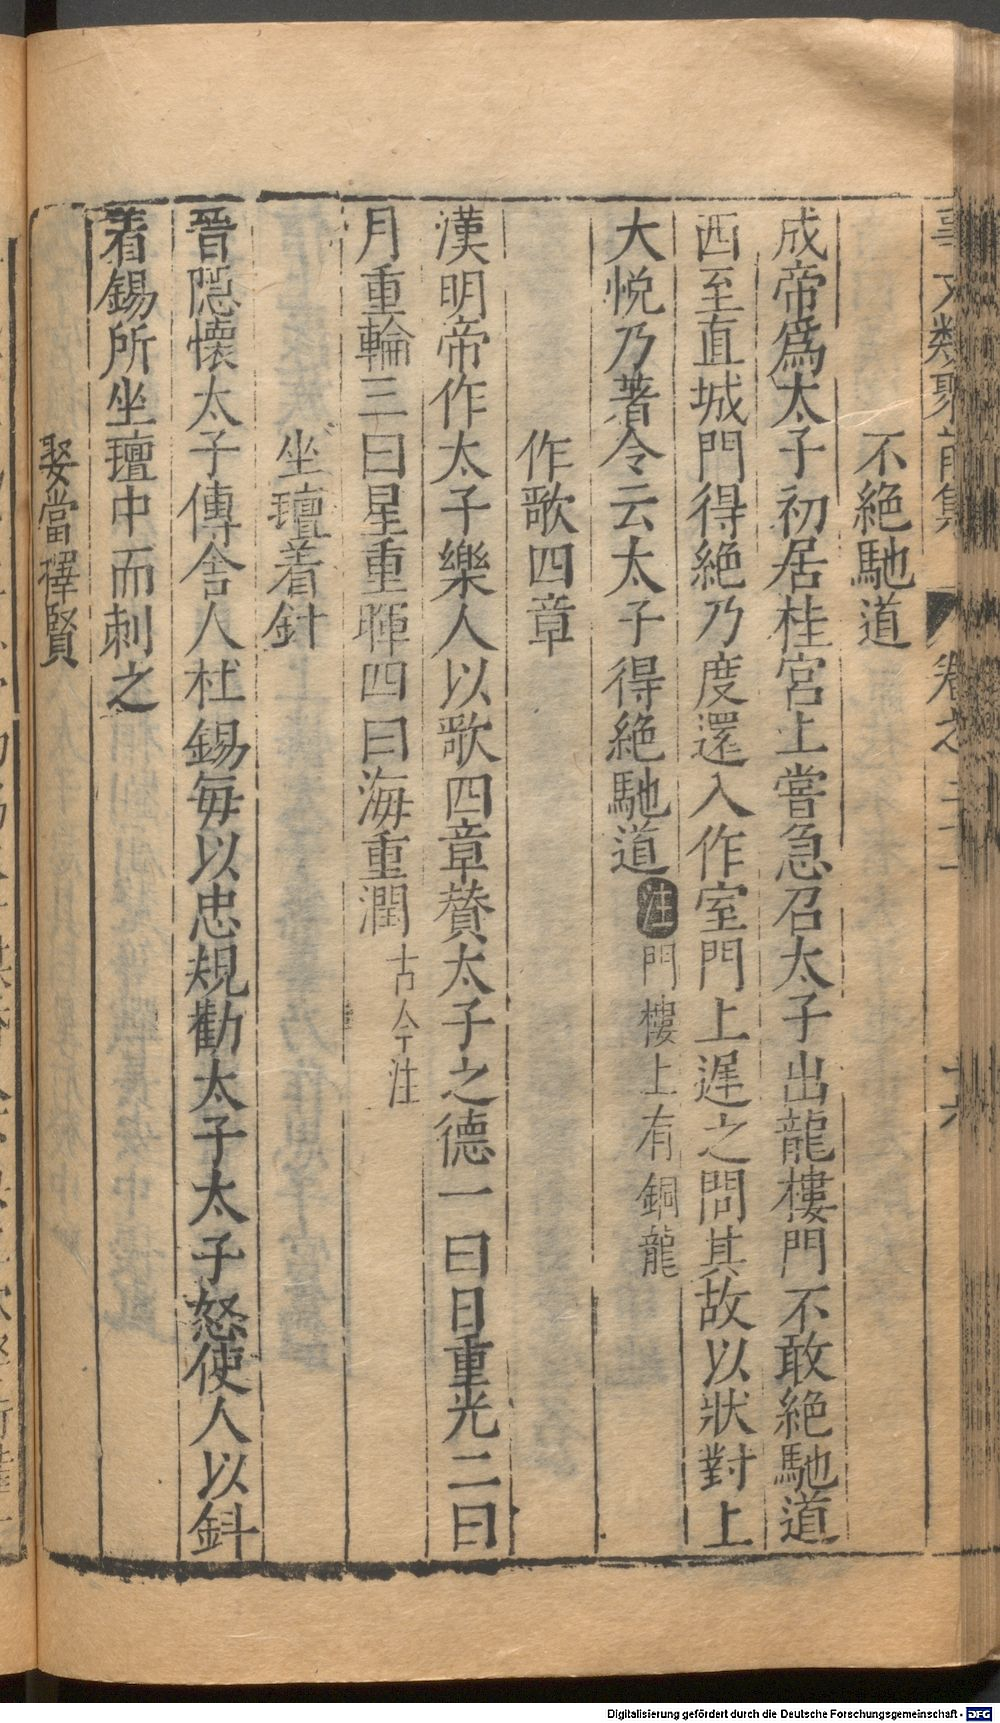 事文類聚前集 卷之二十一 十六
不絕馳道
成帝爲太子初居桂宮上嘗急召太子出龍樓門不敢絕馳道
西至直城門得絕乃度還入作室門上遲之問其故以狀對上
大悅乃著令云太子得絕馳道 注 門樓上有銅龍
作歌四章
漢明帝作太子樂人以歌四章賛太子之德一曰日重光二曰
月重輪三曰星重暉四曰海重潤 古今注
坐璮着針
晉隠懷太子傳舍人杜錫每以忠規勸太子太子怒使人以針
着錫所坐璮中而刺之
娶當擇賢
Digitalisierung gefördert durch die Deutsche Forschungsgemeinschaft - DFG